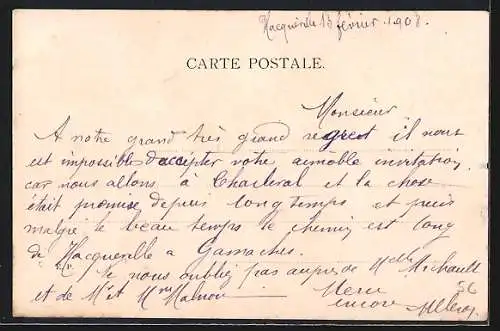 Hacqueville 13 février 1908.
CARTE POSTALE.
Monsieur
A notre grand très grand regret il nous
est impossible d'accepter votre aimable invitation,
car nous allons à Charleval et la chose
était promise depuis longtemps et puis
malgré le beau temps le chemin est long
de Hacqueville a Gamaches.
Ne nous oubliez pas auprès de Melle Michault
et de Mr et Mme
Merci
encore
56